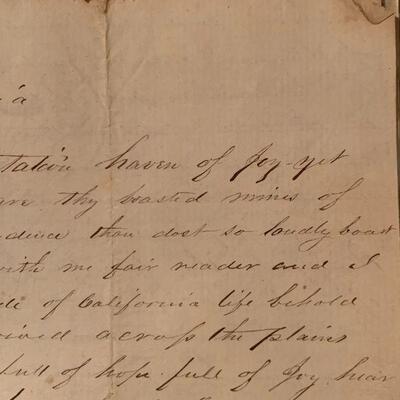 'a
haven of Joy - yet
thy boasted mines of
thou dost so loudly boast
with me fair reader and I
of California life behold
across the plains
full of hope - full of Joy hear